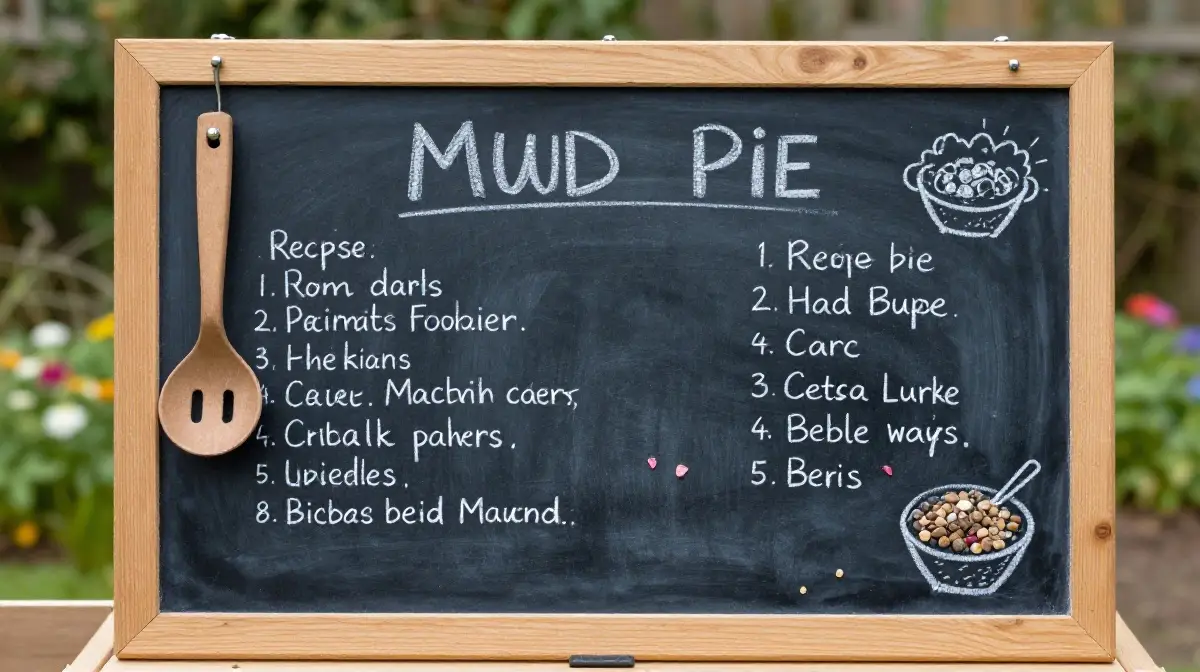 MUD PIE
Recpse.
1. Rom darls
2. Pacimats Foobier.
3. Hhekians
4. Cauec. Mactnih caers,
4. Cribalk pahers.
5. Upiedles.
8. Bicbas beid Maund..
1. Reoje bie
2. Had Bupe.
4. Carc
3. Cetsa Lurke
4. Beble ways.
5. Beris